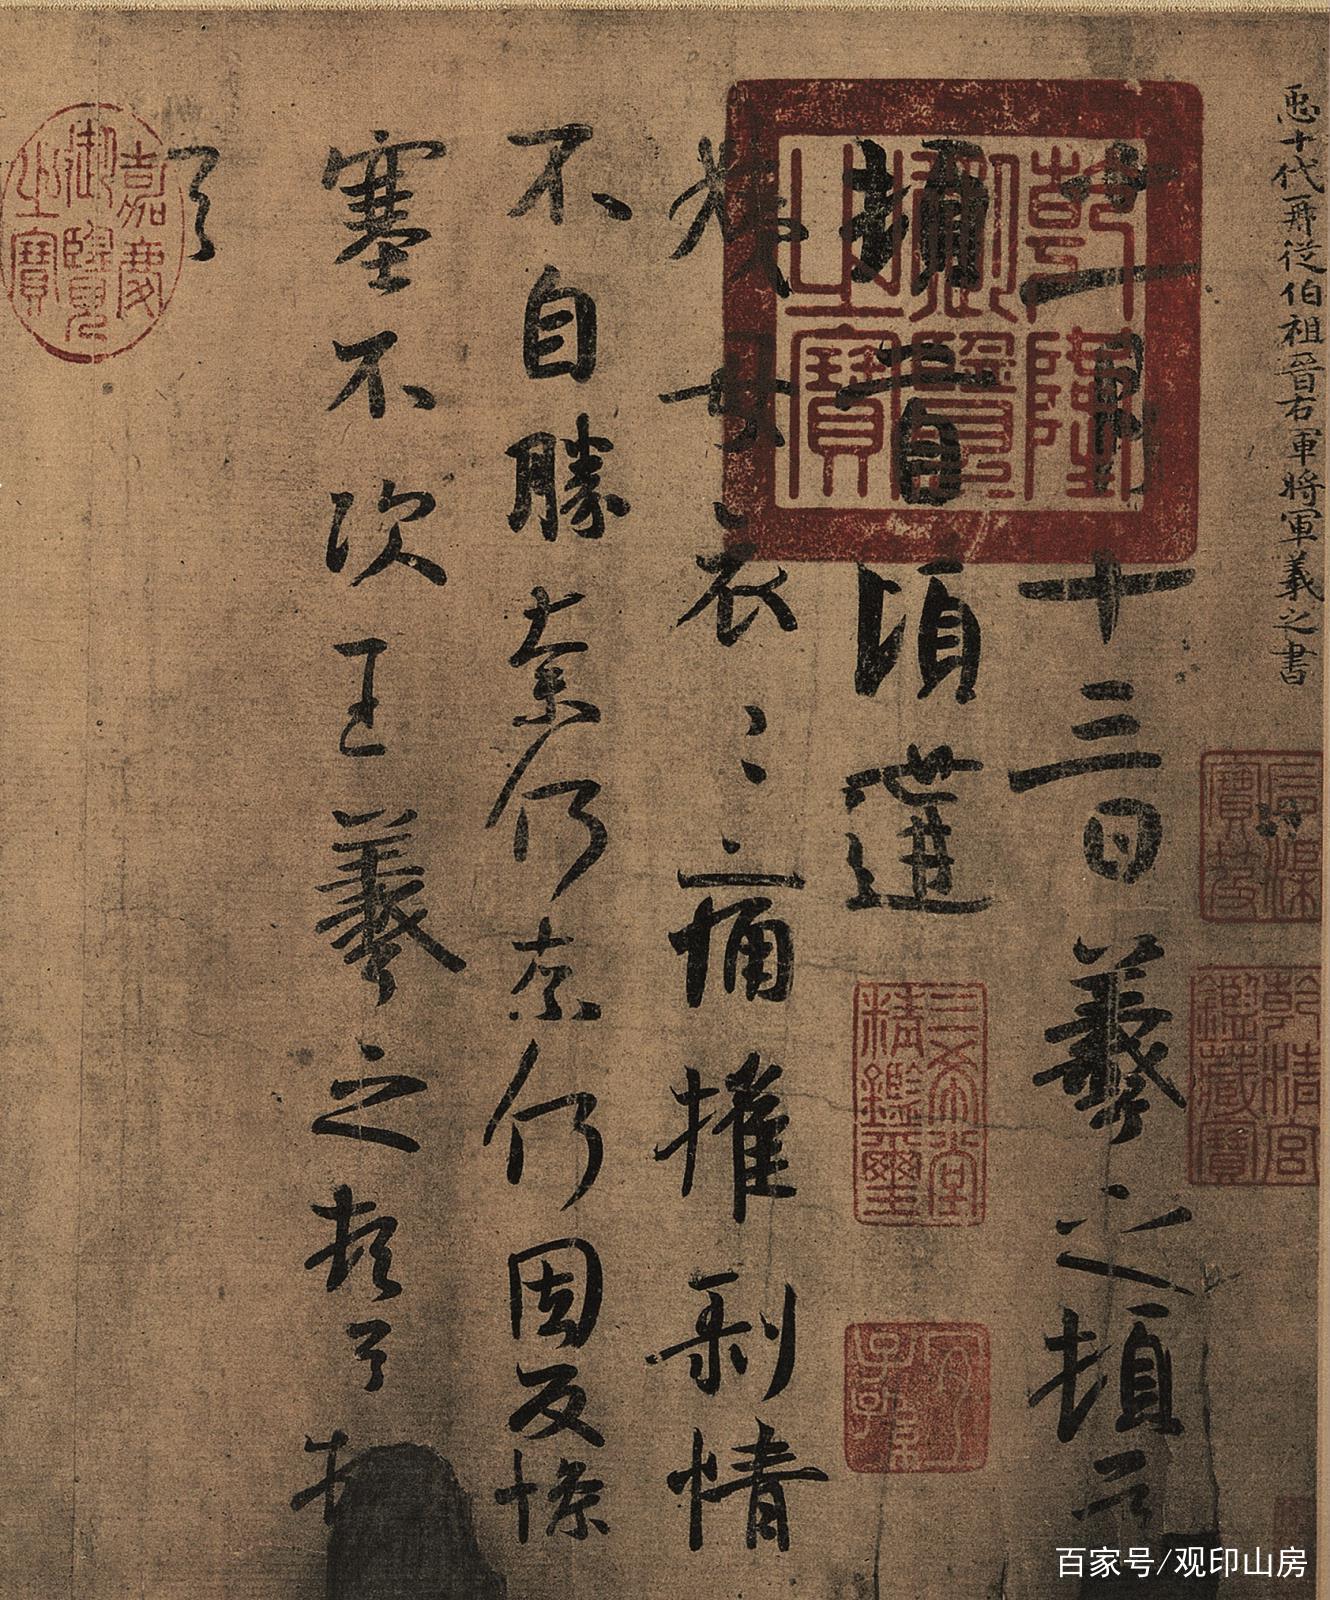 𢘑十代再從伯祖晉右軍將軍羲之書
石渠寶笈
乾清宮鑑藏寶
十一月十三日羲之頓首
乾隆御覽之寶
頓首頃遘
三希堂精鑑璽
宜子孫
姨母哀〻痛摧剝情
不自勝奈何奈何因反慘
塞不次王羲之頓首頓
首
嘉慶御覽之寶
百家号/观印山房